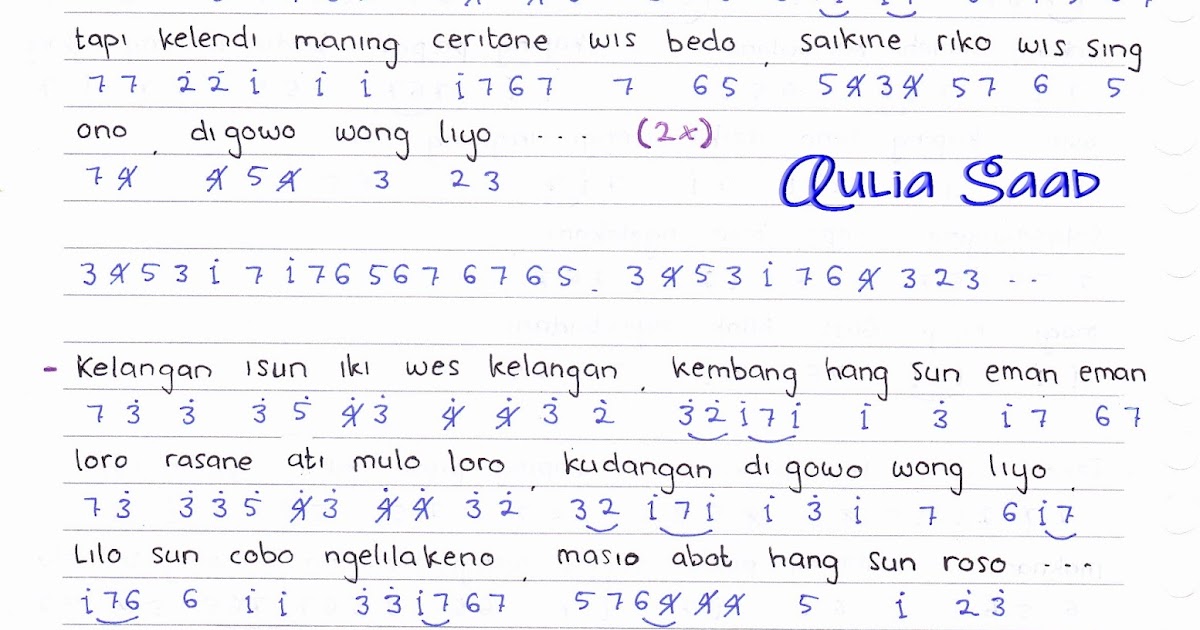 tapi kelendi maning ceritone wis bedo, saikine riko wis sing
7 7 2̇ 2̇ 1̇ 1̇ 1̇ 1̇ 7 6 7 7 6 5 5 4̸ 3 4̸ 5 7 6 5
ono, di gowo wong liyo .... (2x)
7 4̸ 4̸ 5 4̸ 3 2 3
Aulia Saad
3 4̸ 5 3 1̇ 7 1̇ 7 6 5 6 7 6 7 6 5 . 3 4̸ 5 3 1̇ 7 6 4̸ 3 2 3 ..
- Kelangan isun iki wes kelangan, kembang hang sun eman eman
7 3̇ 3̇ 3̇ 5̇ 4̸̇ 3̇ 4̸̇ 4̸̇ 3̇ 2̇ 3̇ 2̇ 1̇ 7 1̇ 1̇ 3̇ 1̇ 7 6 7
loro rasane ati mulo loro, kudangan di gowo wong liyo,
7 3̇ 3̇ 3̇ 5̇ 4̸̇ 3̇ 4̸̇ 4̸̇ 3̇ 2̇ 3̇ 2̇ 1̇ 7 1̇ 1̇ 3̇ 1̇ 7 6 1̇ 7
Lilo sun cobo ngelilakeno, masio abot hang sun roso ....
1̇ 7 6 6 1̇ 1̇ 3̇ 3̇ 1̇ 7 6 7 5 7 6 4̸ 4̸ 4̸ 5 1̇ 2̇ 3̇